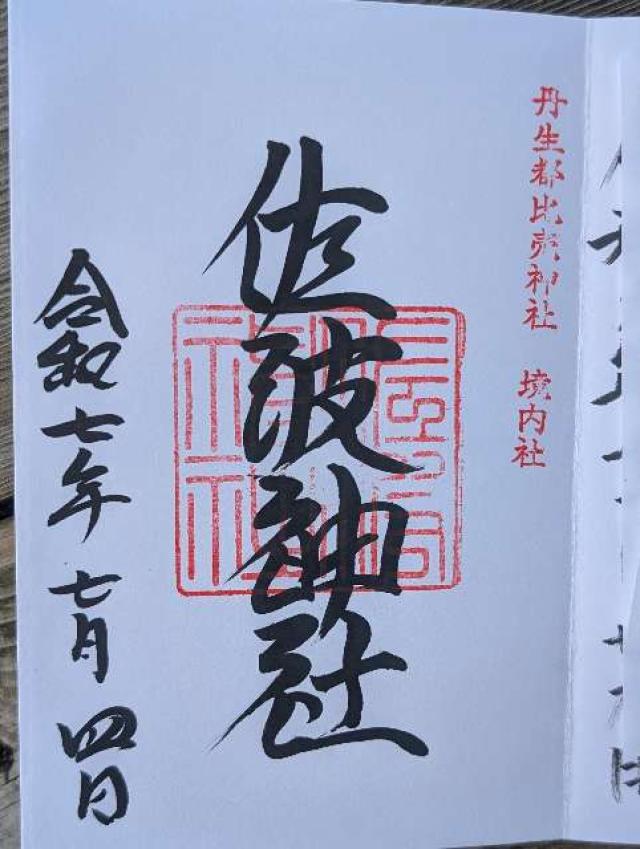 丹生都比売神社 境内社
佐波神社
令和七年七月四日